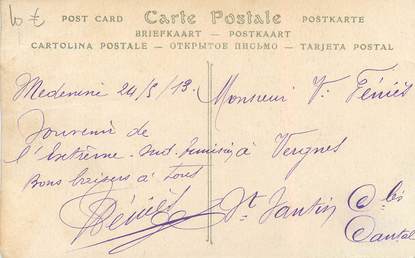 10 €
POST CARD Carte Postale POSTKARTE
BRIEFKAART — POSTKAART
CARTOLINA POSTALE — ОТКРЫТОЕ ПИСЬМО — TARJETA POSTAL
Medenine 24/5/13.
Souvenir de
l'Extrême-Sud-tunisien
Bons baisers à tous
Féniès
Monsieur V. Féniès
à Vergnes
St Santin
Cantal